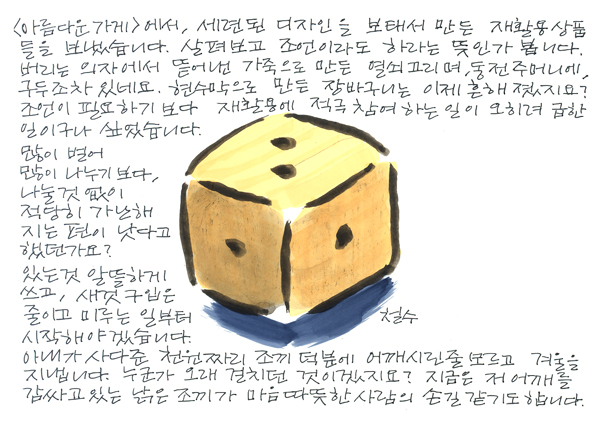 <아름다운 가게>에서, 세련된 디자인을 보태서 만든 재활용상품
들을 보냈습니다. 살펴보고 조언이라도 하라는 뜻인가 봅니다.
버리는 의자에서 뜯어낸 가죽으로 만든 열쇠고리며, 동전주머니에,
구두조차 있네요. 현수막으로 만든 장바구니는 이제 흔해졌지요?
조언이 필요하기보다 재활용에 적극 참여하는 일이 오히려 급한
일이구나 싶었습니다.
많이 벌어
많이 나누기 보다,
나눌것 없이
적당히 가난해
지는 편이 낫다고
했던가요?
있는것 알뜰하게
쓰고, 새것 구입은
줄이고 미루는 일부터
시작해야겠습니다.
철수
아내가 사다준 천원짜리 조끼 덕분에 어깨시린줄 모르고 겨울을
지냅니다. 누군가 오래 걸치던 것이겠지요? 지금은 저 어깨를
감싸고 있는 낡은 조끼가 마음 따뜻한 사람의 손길 같기도 합니다.